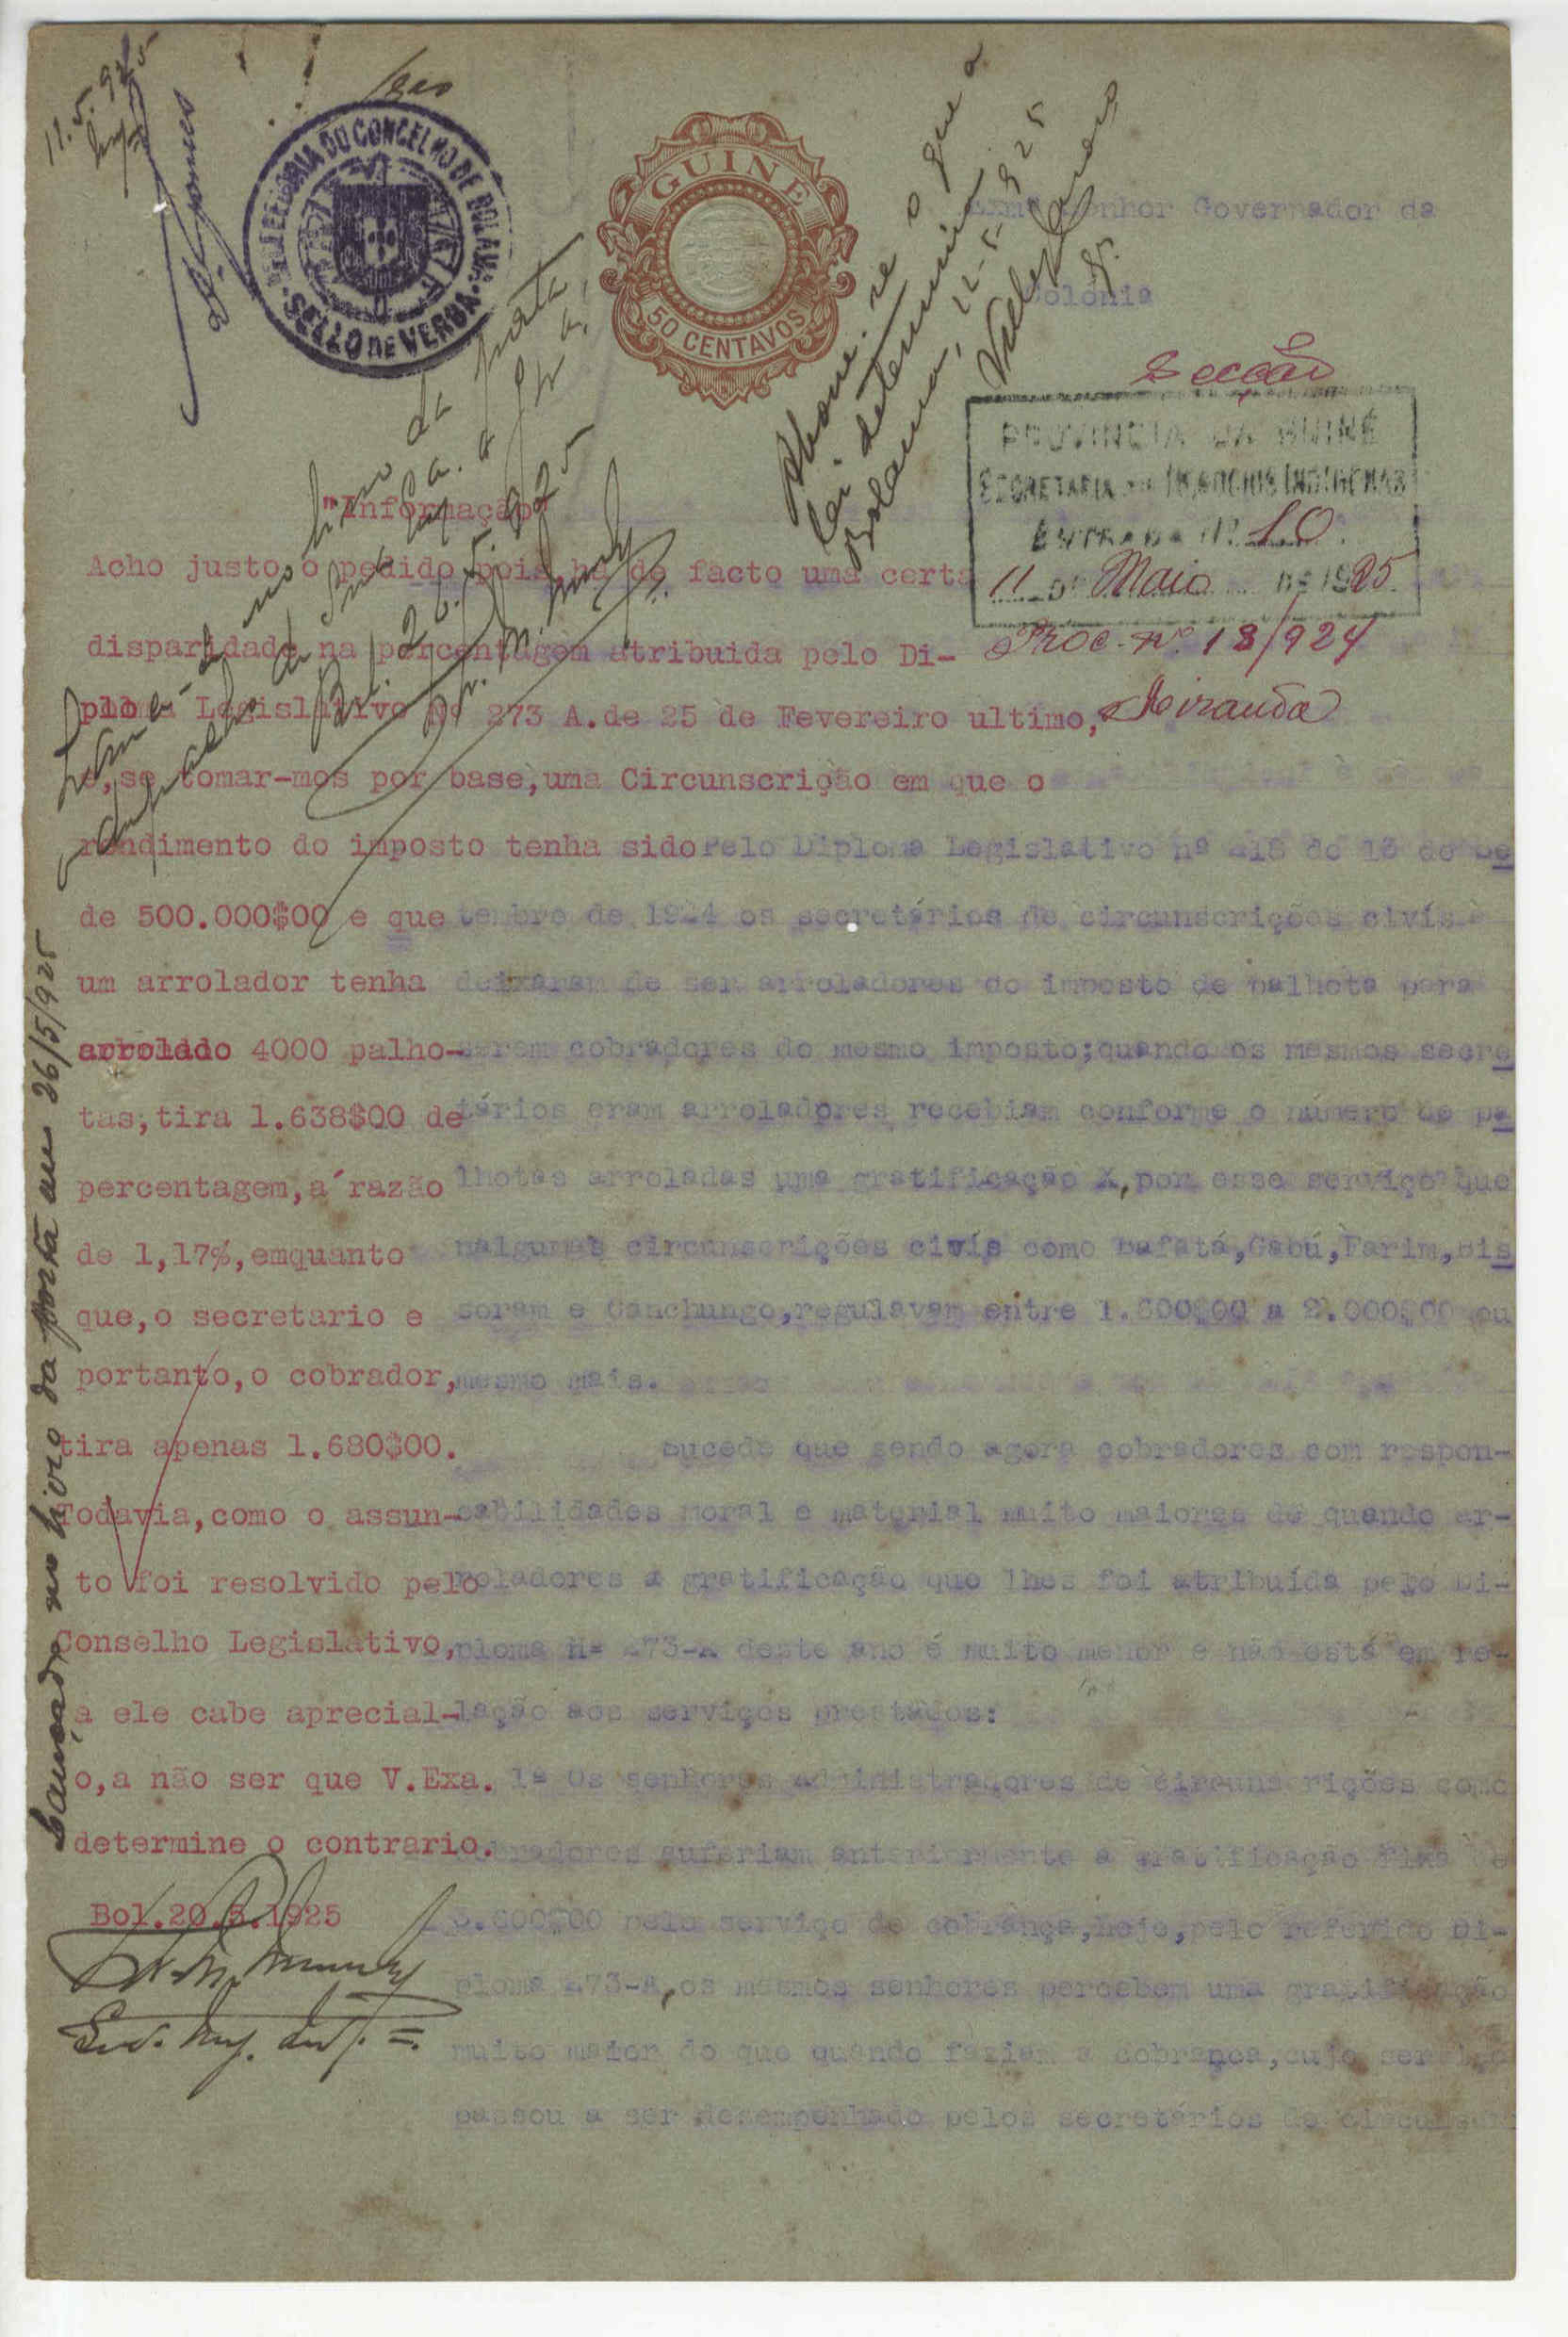 11.5.925
DELEGORIA DO CONCELHO DE BOLAMA
SELLO DE VERBA
GUINÉ
50 CENTAVOS
Exmº Senhor Governador da
Colónia
Abone-se o que a
lei determina
Bolama, 12-5-925
Secção
PROVINCIA DA GUINÉ
SECRETARIA DOS NEGOCIOS INDIGENAS
ENTRADA Nº 10
11 DE Maio DE 1925
Proc. nº 18/924
Miranda
no livro da porta
Bol. 26.5.925
"Informação"
Acho justo o pedido pois, ha de facto uma certa
disparidade na percentagem atribuida pelo Di-
ploma Legislativo Nº 273 A.de 25 de Fevereiro ultimo,
e,se tomar-mos por base,uma Circunscrição em que o
rendimento do imposto tenha sido
de 500.000$00 e que
um arrolador tenha
arrolado 4000 palho-
tas,tira 1.638$00 de
percentagem,á razão
de 1,17%,emquanto
que,o secretario e
portanto,o cobrador,
tira apenas 1.680$00.
Todavia,como o assun-
to foi resolvido pelo
Conselho Legislativo,
a ele cabe aprecial-
o,a não ser que V.Exa.
determine o contrario.
Bol.20.5.1925
Pelo Diploma Legislativo nº 218 de 13 de Se
tembro de 1924 os secretários de circunscrições civís
deixaram de ser arroladores do imposto de palhota para
serem cobradores do mesmo imposto;quando os mesmos secre
tários eram arroladores recebiam conforme o número de pa
lhotas arroladas uma gratificação X,por esse serviço que
nalgumas circunscrições civís como Bafatá,Gabú,Farim,Bis
soram e Canchungo,regulavam entre 1.600$00 a 2.000$00 ou
mesmo mais.
Sucede que sendo agora cobradores com respon-
sabilidades moral e material muito maiores do quando ar-
roladores a gratificação que lhes foi atribuída pelo Di-
ploma Nº 273-A deste ano é muito menor e não está em re-
lação aos serviços prestados:
1º Os senhores Administradores de circunscrições como
cobradores auferiam anteriormente a gratificação fixa de
3.600$00 pelo serviço de cobrança,hoje,pelo referido Di-
ploma 273-A,os mesmos senhores percebem uma gratificação
muito maior do que quando faziam a cobrança,cujo serviço
passou a ser desempenhado pelos secretários de circunscri
Lançado no livro da porta em 26/5/925